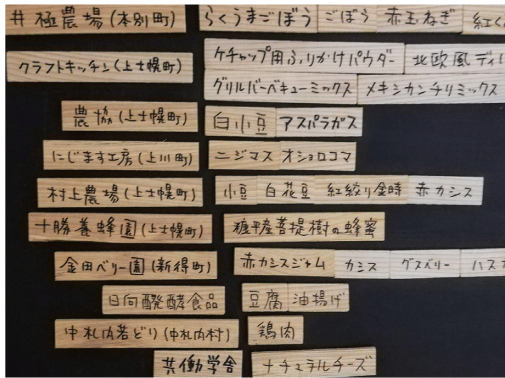 井極農場(本別町) らくうまごぼう ごぼう 赤玉ねぎ
クラフトキッチン(上士幌町) ケチャップ用ふりかけパウダー 北欧風ディ
グリルバーベキューミックス メキシカンチリミックス
農協(上士幌町) 白小豆 アスパラガス
にじます工房(上川町) ニジマス オショロコマ
村上農場(上士幌町) 小豆 白花豆 紅絞り金時 赤カシス
十勝養蜂園(上士幌町) 糠平産菩提樹の蜂蜜
金田ベリー園(新得町) 赤カシスジャム カシス グズベリー ハス
日向醗酵食品 豆腐 油揚げ
中札内若どり(中札内村) 鶏肉
共働学舎 ナチュラルチーズ